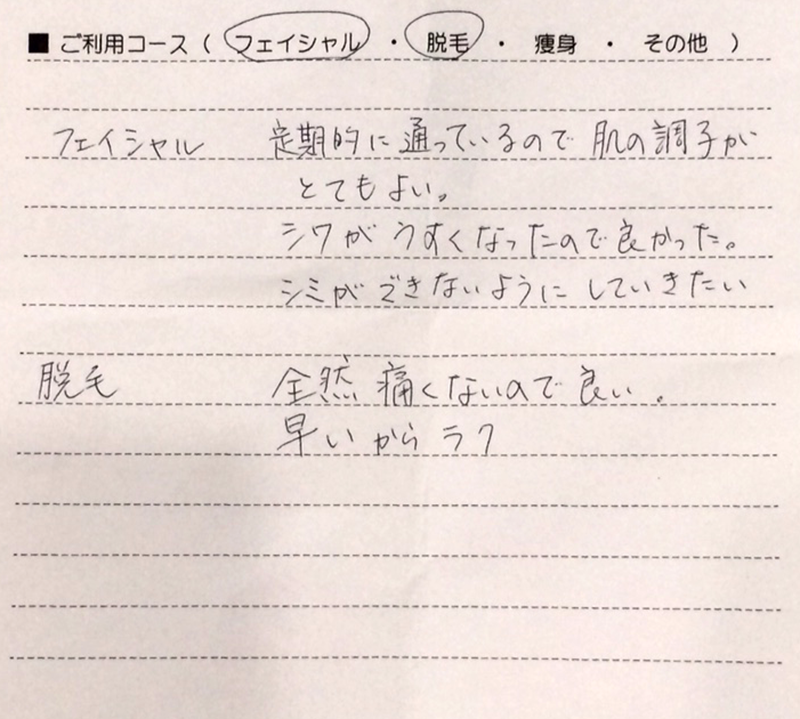 ■ ご利用コース（ フェイシャル ・ 脱毛 ・ 痩身 ・ その他 ）
フェイシャル 定期的に通っているので肌の調子が
とてもよい。
シワがうすくなったので良かった。
シミができないようにしていきたい
脱毛 全然痛くないので良い.
早いからラク